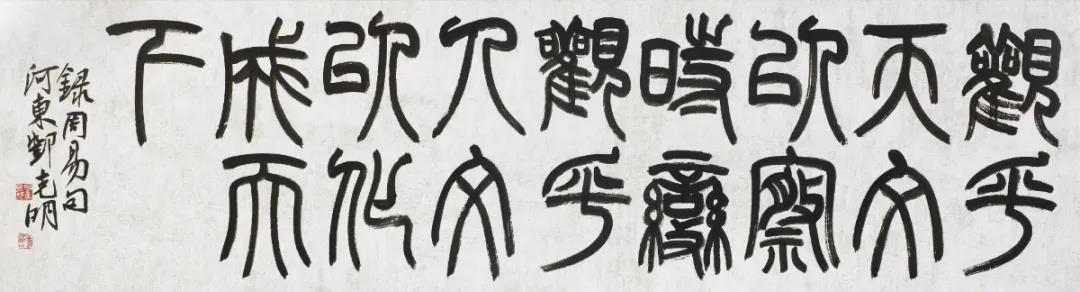 觀乎
天文
以察
時變
觀乎
人文
以化
成天
下
錄周易句
河東鄧克明